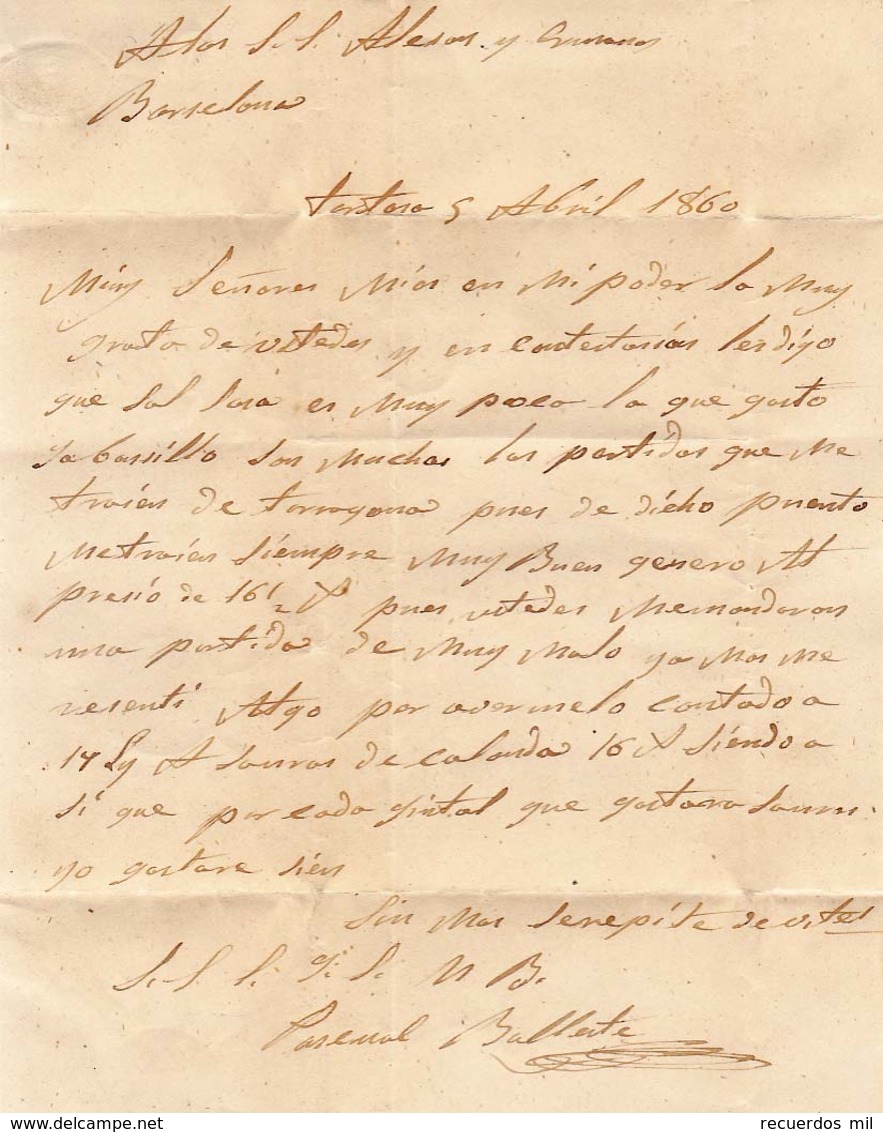 A los S. S. Alesan y
Barselona
tortosa 5 Abril 1860
Múy Señores Mios en Mi poder la Muy
grata de ustedes y en contestasian les digo
que sal sosa es Muy poco la que gasto
ya bassillo son Muchas las partidas que Me
traien de tarragona pues de dicho puento
Me traien siempre Muy Buen genero Al
presio de 16 1/2 pues ustedes Me mandaron
una partida de Muy Malo ya Mas Me
resenti Algo por avermelo contado a
17 y A Sauras de calanda 16 siendo a
si que por cada qintal que gastara Sauras
yo gastare sien
Sin Mas se repite de ustes
S. S. S. q. S. M B.
Pascual Balleste
delcampe.net
recuerdos mil